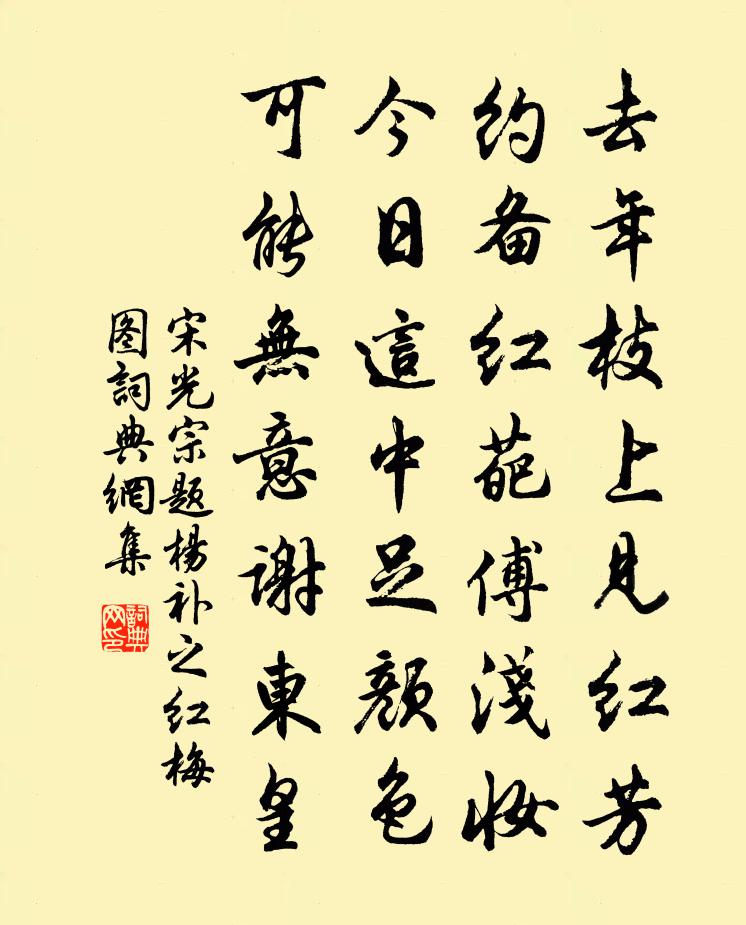 去年枝上見红芳
约备红葩傅淺妝
今日這中足颜色
可能無意謝東皇
宋光宗题楊补之红梅
图詞典網集
詞典
网印